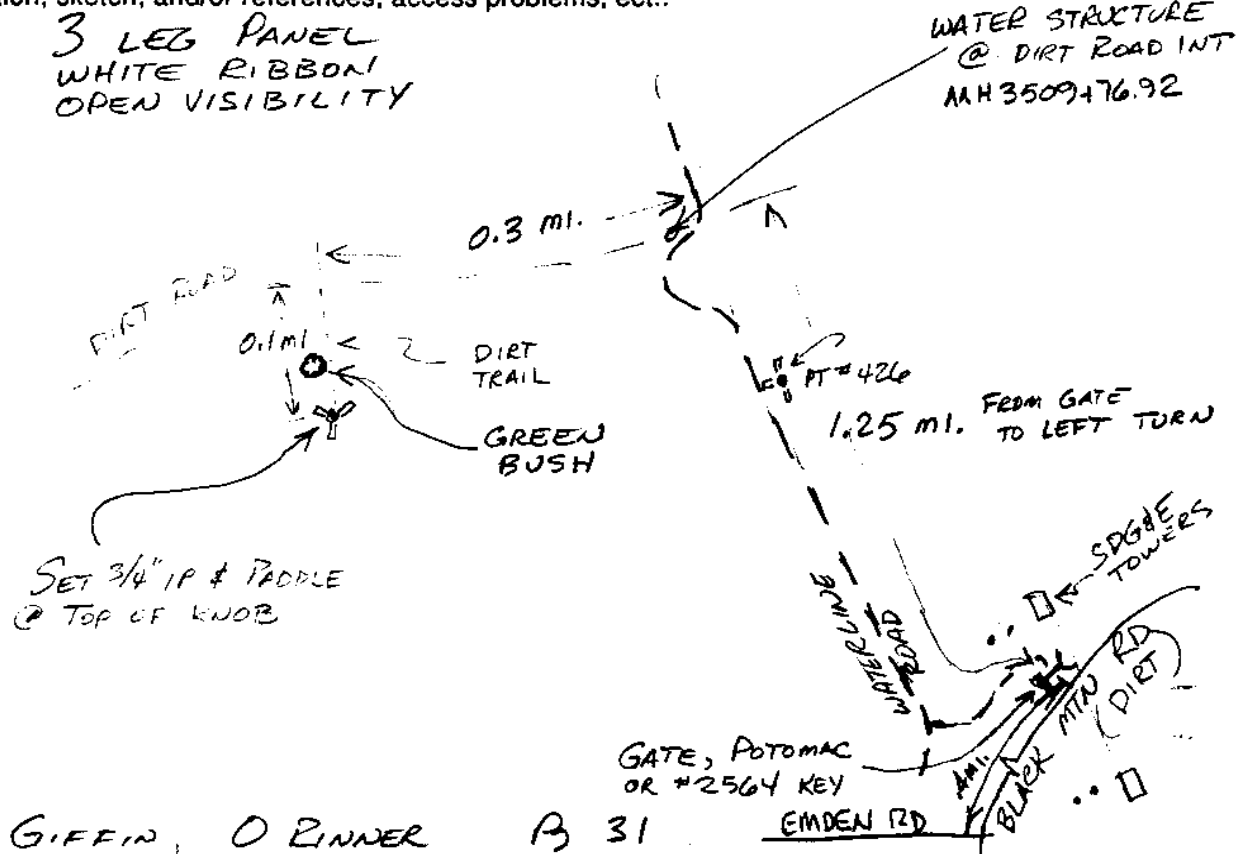 tion, sketch, and/or references, access problems, ect..
3 LEG PANEL
WHITE RIBBON
OPEN VISIBILITY
WATER STRUCTURE
@ DIRT ROAD INT
MH 3509+76.92
0.3 MI.
DIRT ROAD
0.1 MI
DIRT
TRAIL
PT #426
1.25 MI. FROM GATE
TO LEFT TURN
GREEN
BUSH
SET 3/4" IP & PADDLE
@ TOP OF KNOB
SDG&E
TOWERS
WATERLINE
ROAD
BLACK MTN RD
(DIRT)
GATE, POTOMAC
OR #2564 KEY
EMDEN RD
GIFFIN, O RINNER B 31